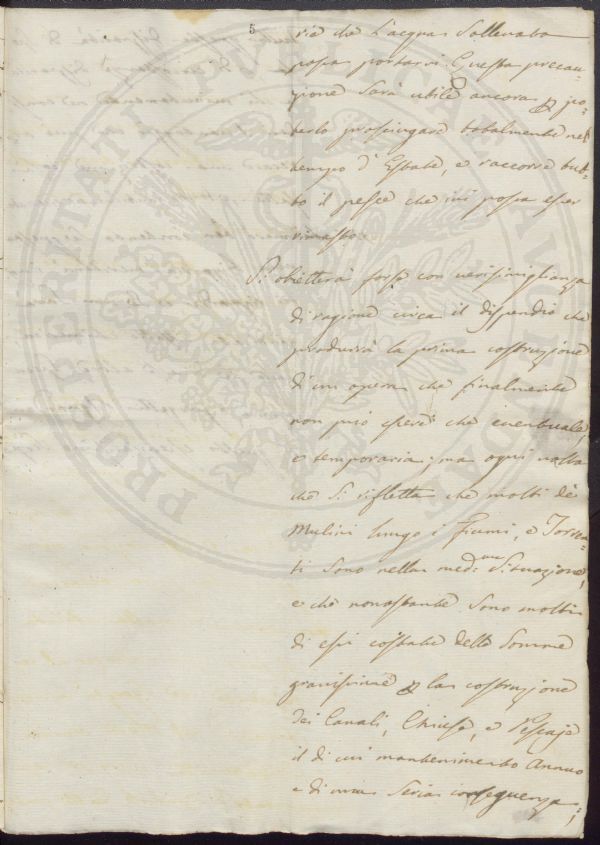 5
ria che l'acqua sollevata
possa portarvi. Questa precau-
zione sarà utile ancora p po-
terlo prosciugare totalmente nel
tempo d'Estate, e raccorre tut-
to il pesce che ivi possa esser
rimasto.
Si obietterà forse con verisimiglianza
di ragione circa il dispendio che
produrrà la prima costruzione
di un opera che finalmente
non può essere che eventuale,
e temporaria; ma ogni volta
che si rifletta che molti de
Mulini lungo i Fiumi, e Torren-
ti sono nella med:ma situazione,
e che nonostante sono molti
di essi costate delle somme
gravissime p la costruzione
dei Canali, Chiuse, e Pescaje
il di cui mantenimento annuo
e di una seria conseguenza;
PROSPERITATI PUBLICAE AUGENDAE